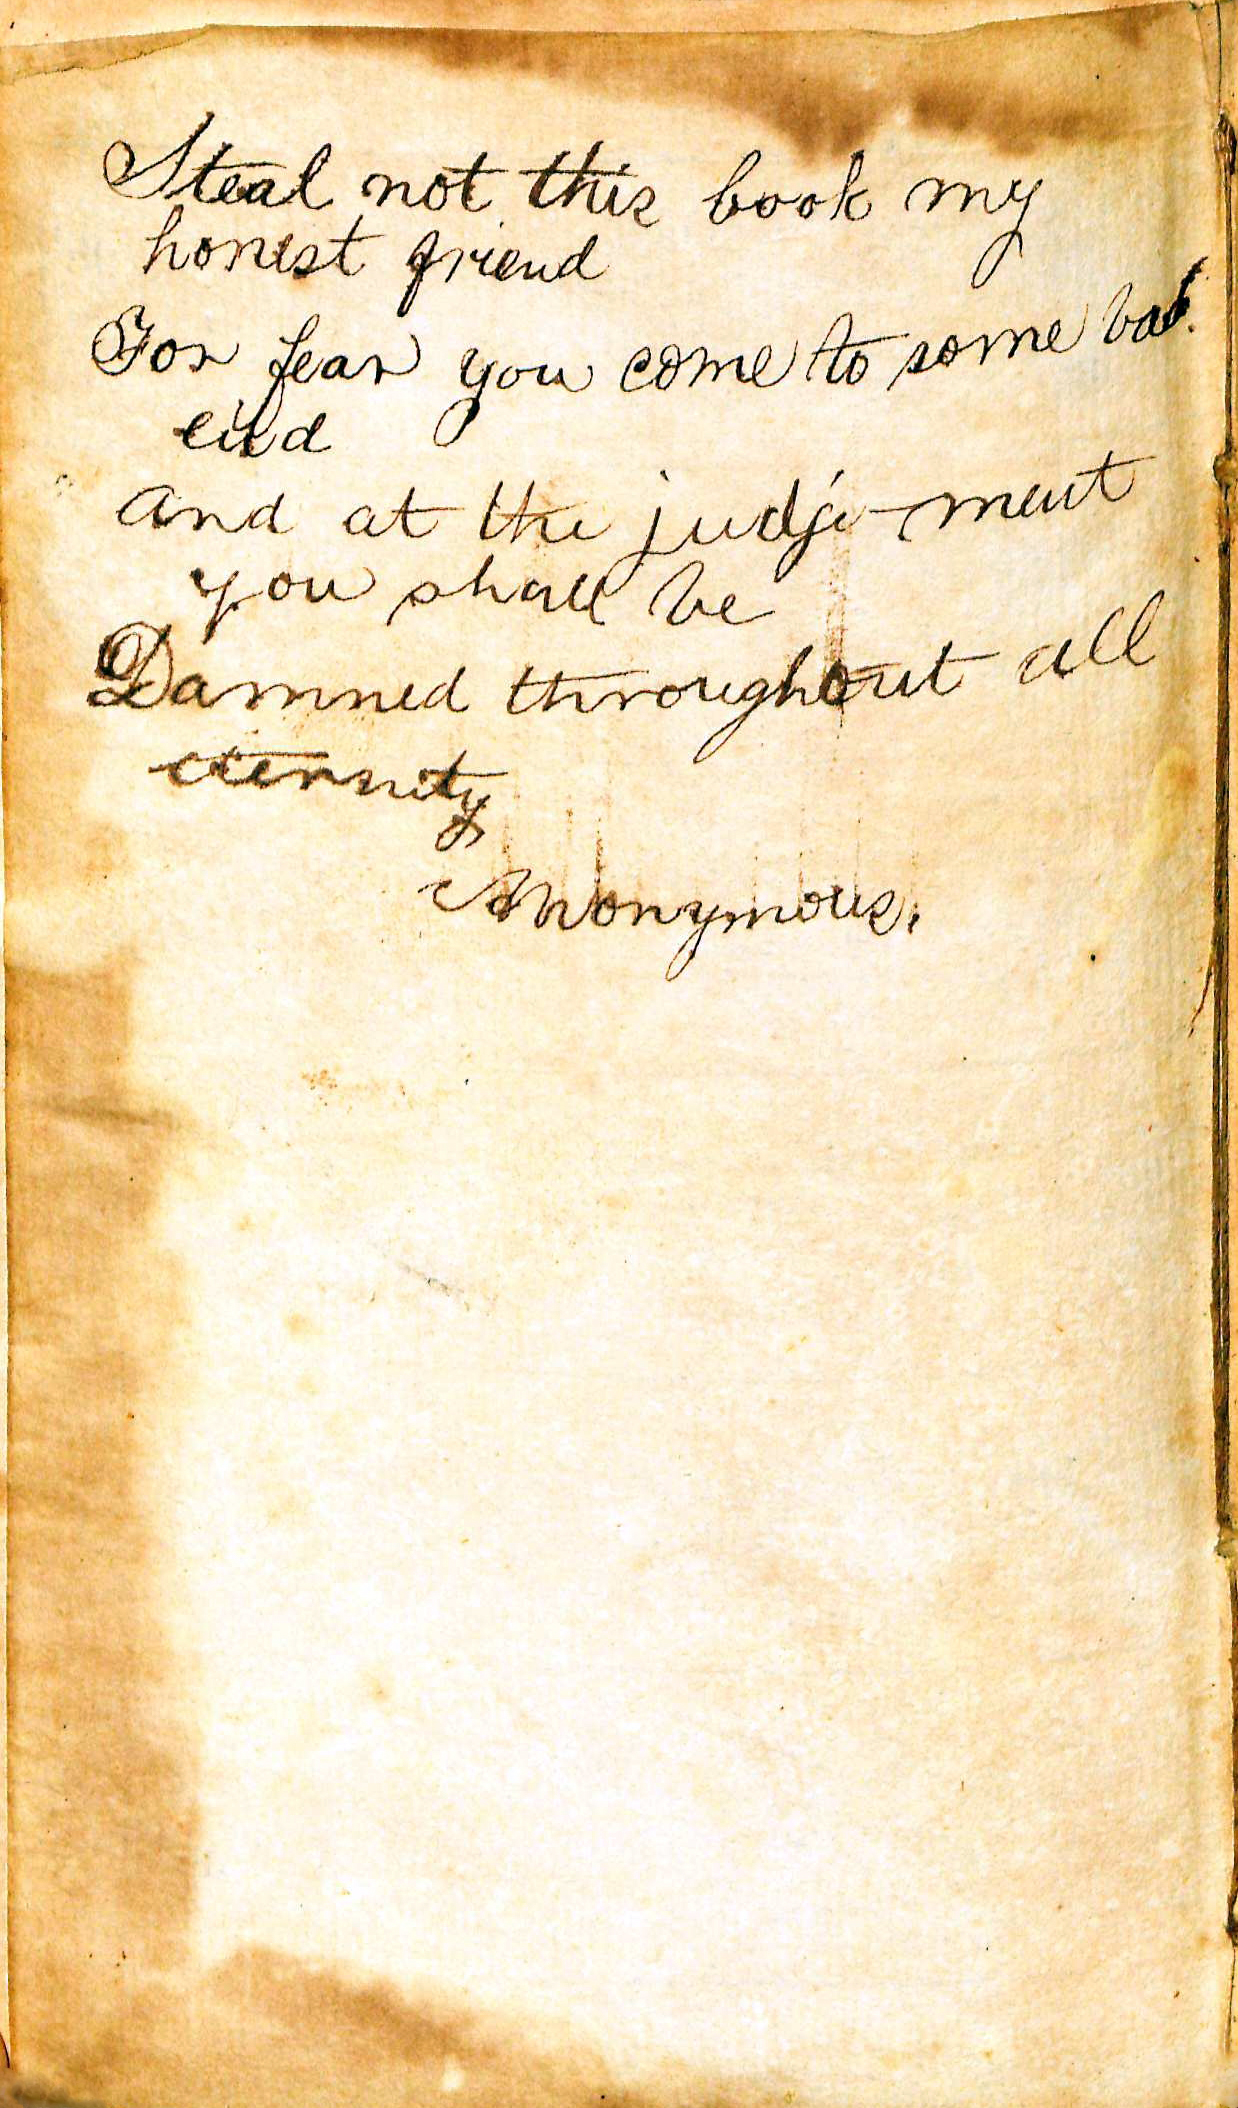 Steal not this book my
honest friend
For fear you come to some bad
end
And at the judge-ment
you shall be
Damned throughout all
eternity
Anonymous.